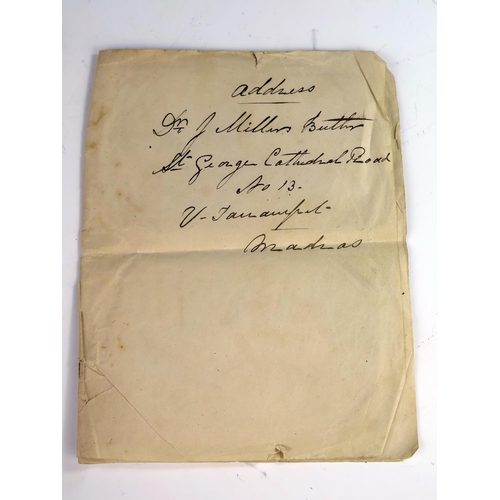 Address
Dr. J Millers Butler
St. George Cathedral Road
No 13.
Madras